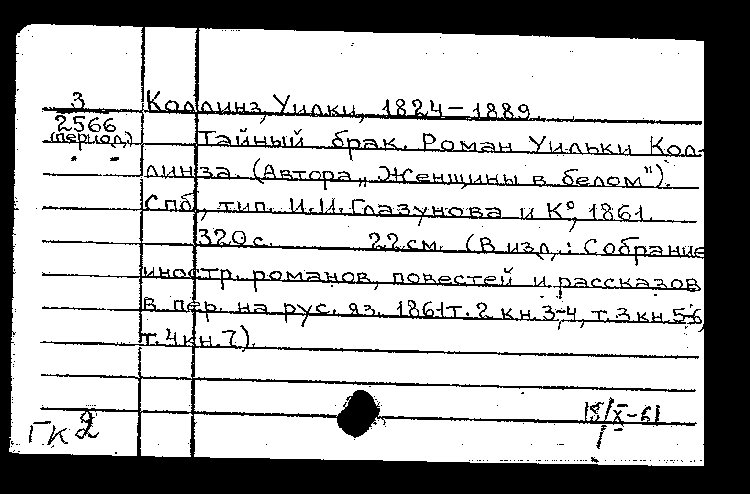 3 Коллинз, Уилки, 1824–1889.
2566
(период.) Тайный брак. Роман Уильки Кол-
линза. (Автора „Женщины в белом").
Спб, тип. И.И.Глазунова и К°, 1861.
320 с. 22 см. (В изд.: Собрание
иностр. романов, повестей и рассказов
в пер. на рус. яз. 1861 т. 2 кн. 3-4, т. 3 кн. 5-6,
т. 4 кн. 7).
18/X-61
ГК2